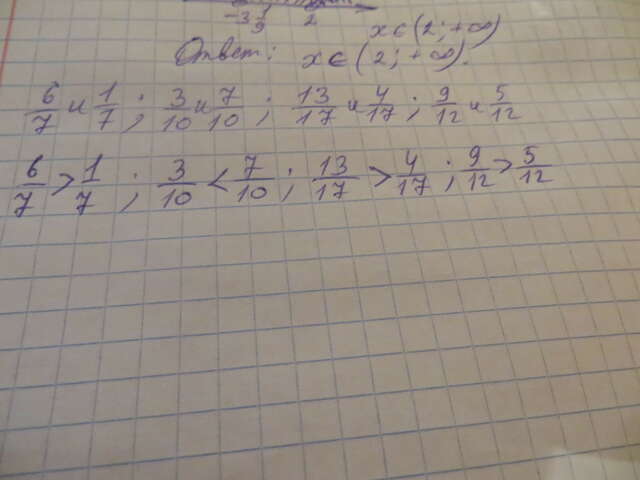 -3 1/9 2
x ∈ (2; +∞)
Ответ: x ∈ (2; +∞).
6/7 и 1/7; 3/10 и 7/10; 13/17 и 4/17; 9/12 и 5/12
6/7 > 1/7; 3/10 < 7/10; 13/17 > 4/17; 9/12 > 5/12